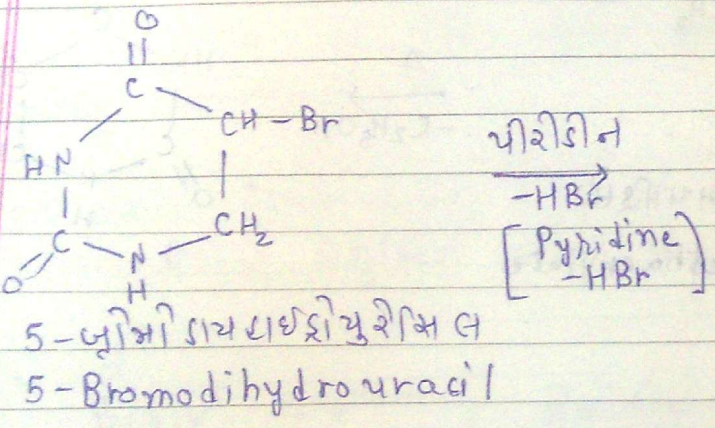 O
||
C
CH-Br
HN
પીરીડીન
-HBr
CH₂
C
N
H
O
[Pyridine
-HBr]
5-બ્રોમોડાયહાઈડ્રોયુરેસિલ
5-Bromodihydrouracil